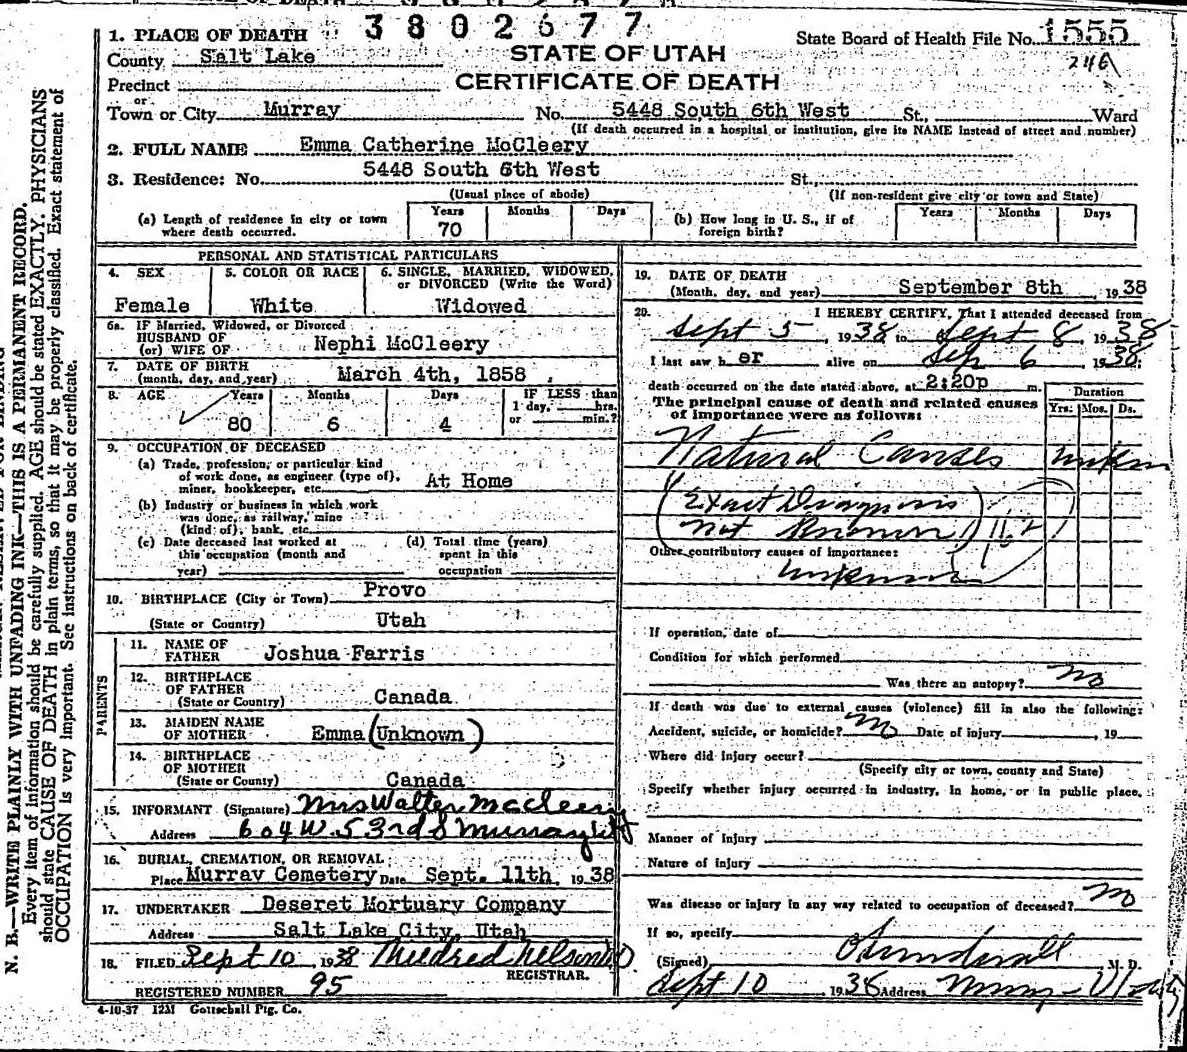 3802677
1. PLACE OF DEATH
State Board of Health File No. 1555
246
County Salt Lake
STATE OF UTAH
CERTIFICATE OF DEATH
Precinct
or
Town or City Murray No. 5448 South 6th West St., Ward
(If death occurred in a hospital or institution, give its NAME instead of street and number)
2. FULL NAME Emma Catherine McCleery
3. Residence: No. 5448 South 6th West St.,
(Usual place of abode) (If non-resident give city or town and State)
(a) Length of residence in city or town where death occurred. Years 70 Months Days
(b) How long in U. S., if of foreign birth? Years Months Days
PERSONAL AND STATISTICAL PARTICULARS
4. SEX Female
5. COLOR OR RACE White
6. SINGLE, MARRIED, WIDOWED, or DIVORCED (Write the Word) Widowed
6a. IF Married, Widowed, or Divorced
HUSBAND OF
(or) WIFE OF Nephi McCleery
7. DATE OF BIRTH
(month, day, and year) March 4th, 1858
8. AGE Years Months Days IF LESS than
1 day, hrs.
or min.?
80 6 4
9. OCCUPATION OF DECEASED
(a) Trade, profession, or particular kind
of work done, as engineer (type of),
miner, bookkeeper, etc. At Home
(b) Industry or business in which work
was done, as railway, mine
(kind of), bank, etc
(c) Date deceased last worked at
this occupation (month and
year)
(d) Total time (years)
spent in this
occupation
10. BIRTHPLACE (City or Town) Provo
(State or Country) Utah
PARENTS
11. NAME OF
FATHER Joshua Farris
12. BIRTHPLACE
OF FATHER
(State or Country) Canada
13. MAIDEN NAME
OF MOTHER Emma (Unknown)
14. BIRTHPLACE
OF MOTHER
(State or County) Canada
15. INFORMANT (Signature) Mrs Walter Macleery
Address 604 W. 53rd S Murray
16. BURIAL, CREMATION, OR REMOVAL
Place Murray Cemetery Date Sept. 11th, 1938
17. UNDERTAKER Deseret Mortuary Company
Address Salt Lake City, Utah
18. FILED Sept 10 1938 Mildred Nelson
REGISTRAR.
REGISTERED NUMBER 95
4-10-37 12M Gottschall Ptg. Co.
19. DATE OF DEATH
(Month, day, and year) September 8th, 1938
20. I HEREBY CERTIFY, That I attended deceased from
Sept 5, 1938 to Sept 8, 1938
I last saw h er alive on Sep 6 1938
death occurred on the date stated above, at 2:20p m.
The principal cause of death and related causes
of importance were as follows:
Duration
Yrs. Mos. Ds.
Natural Causes unkn
(Exact Diagnosis
not Known)
Other contributory causes of importance:
unknown
If operation, date of
Condition for which performed
Was there an autopsy? no
If death was due to external causes (violence) fill in also the following:
Accident, suicide, or homicide? no Date of injury , 19
Where did injury occur?
(Specify city or town, county and State)
Specify whether injury occurred in industry, in home, or in public place.
Manner of injury
Nature of injury
Was disease or injury in any way related to occupation of deceased? no
If so, specify
(Signed) M. D.
Sept 10, 1938 Address Murray - Utah
N. B.—WRITE PLAINLY WITH UNFADING INK—THIS IS A PERMANENT RECORD.
Every item of information should be carefully supplied. AGE should be stated EXACTLY. PHYSICIANS
should state CAUSE OF DEATH in plain terms, so that it may be properly classified. Exact statement of
OCCUPATION is very important. See instructions on back of certificate.